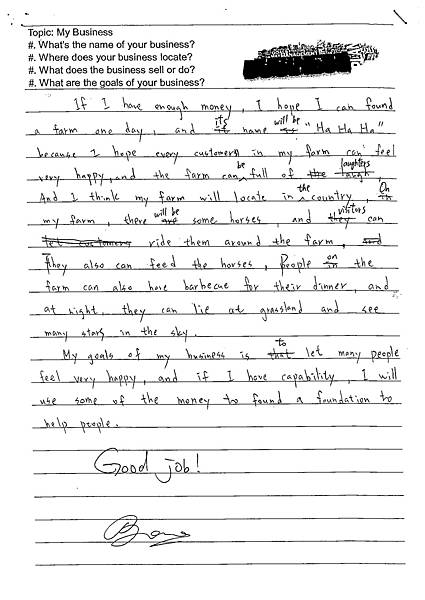 Topic: My Business
#. What's the name of your business?
#. Where does your business locate?
#. What does the business sell or do?
#. What are the goals of your business?
If I have enough money, I hope I can found
a farm one day, and it its name is will be "Ha Ha Ha"
because I hope every customers in my farm can feel
very happy, and the farm can be full of the laugh laughters.
And I think my farm will locate in the country, In On
my farm, there are will be some horses, and they visitors can
let customers ride them around the farm, and
They also can feed the horses, People in on the
farm can also have barbecue for their dinner, and
at night, they can lie at grassland and see
many stars in the sky.
My goals of my business is that to let many people
feel very happy, and if I have capability, I will
use some of the money to found a foundation to
help people.
Good job!